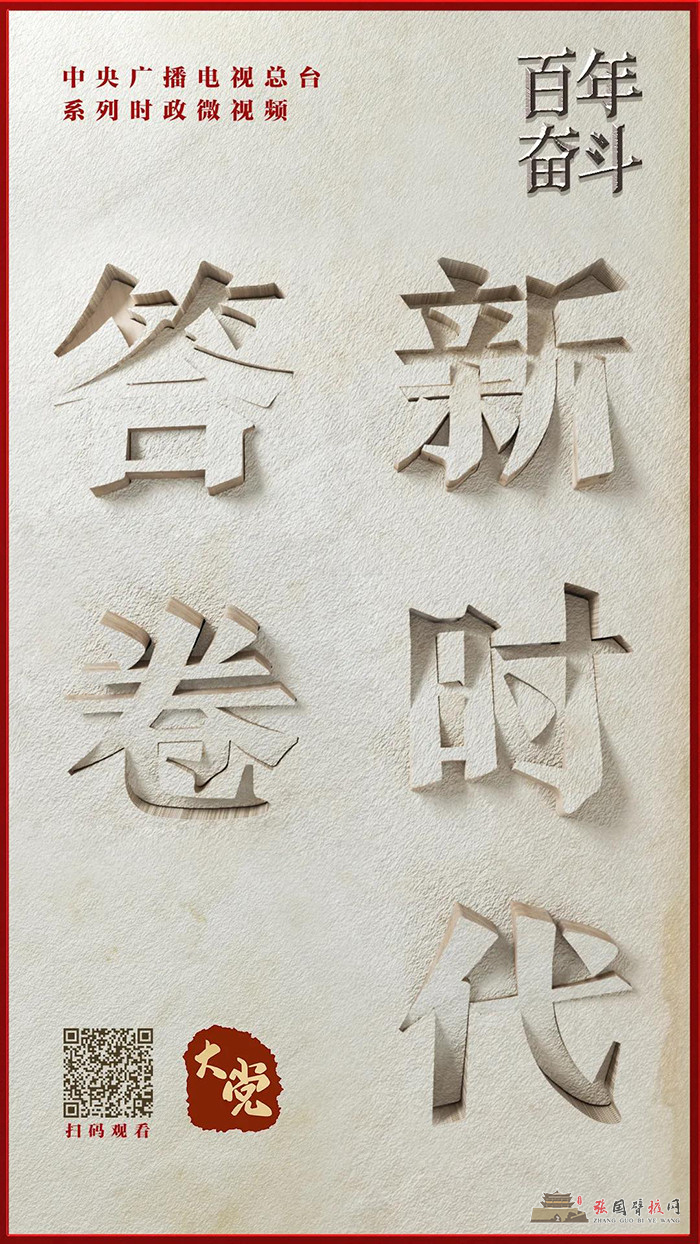 中央广播电视总台
系列时政微视频
百年
奋斗
新时代
答卷
扫码观看
大党
张国臂掖网
ZHANG GUO BI YE WANG